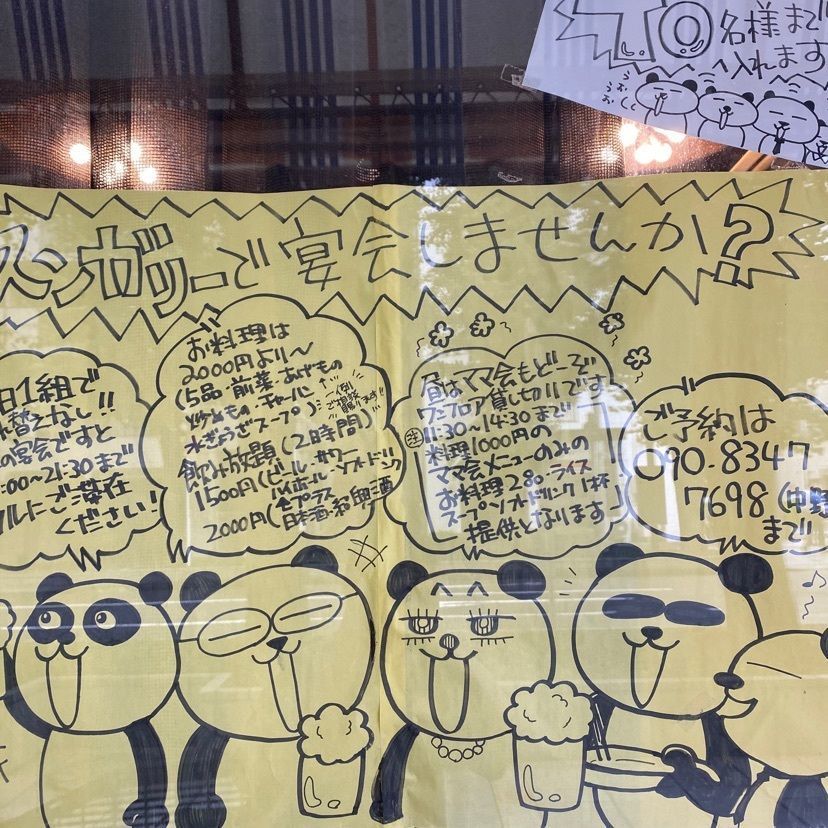 10名様まで
入れます
うおおくく
ヘンガリーで宴会しませんか?
日1組で
替えなし!!
の宴会ですと
:00〜21:30まで
ルにご滞在
ください!
お料理は
2000円より〜
(5品・前菜・あげもの
炒めもの・チャーハン
水ぎょうざスープ)
飲み放題(2時間)
1500円(ビール・サワー
ハイボール・ソフトドリンク
2000円(全プラス
日本酒・紹興酒
昼はママ会もどーぞ
ワンフロア貸し切りです
11:30〜14:30まで
㊟料理1000円の
ママ会メニューのみの
お料理2品・ライス
スープソフトドリンク1杯
提供となります
ご予約は
090-8347
7698(中野
まで